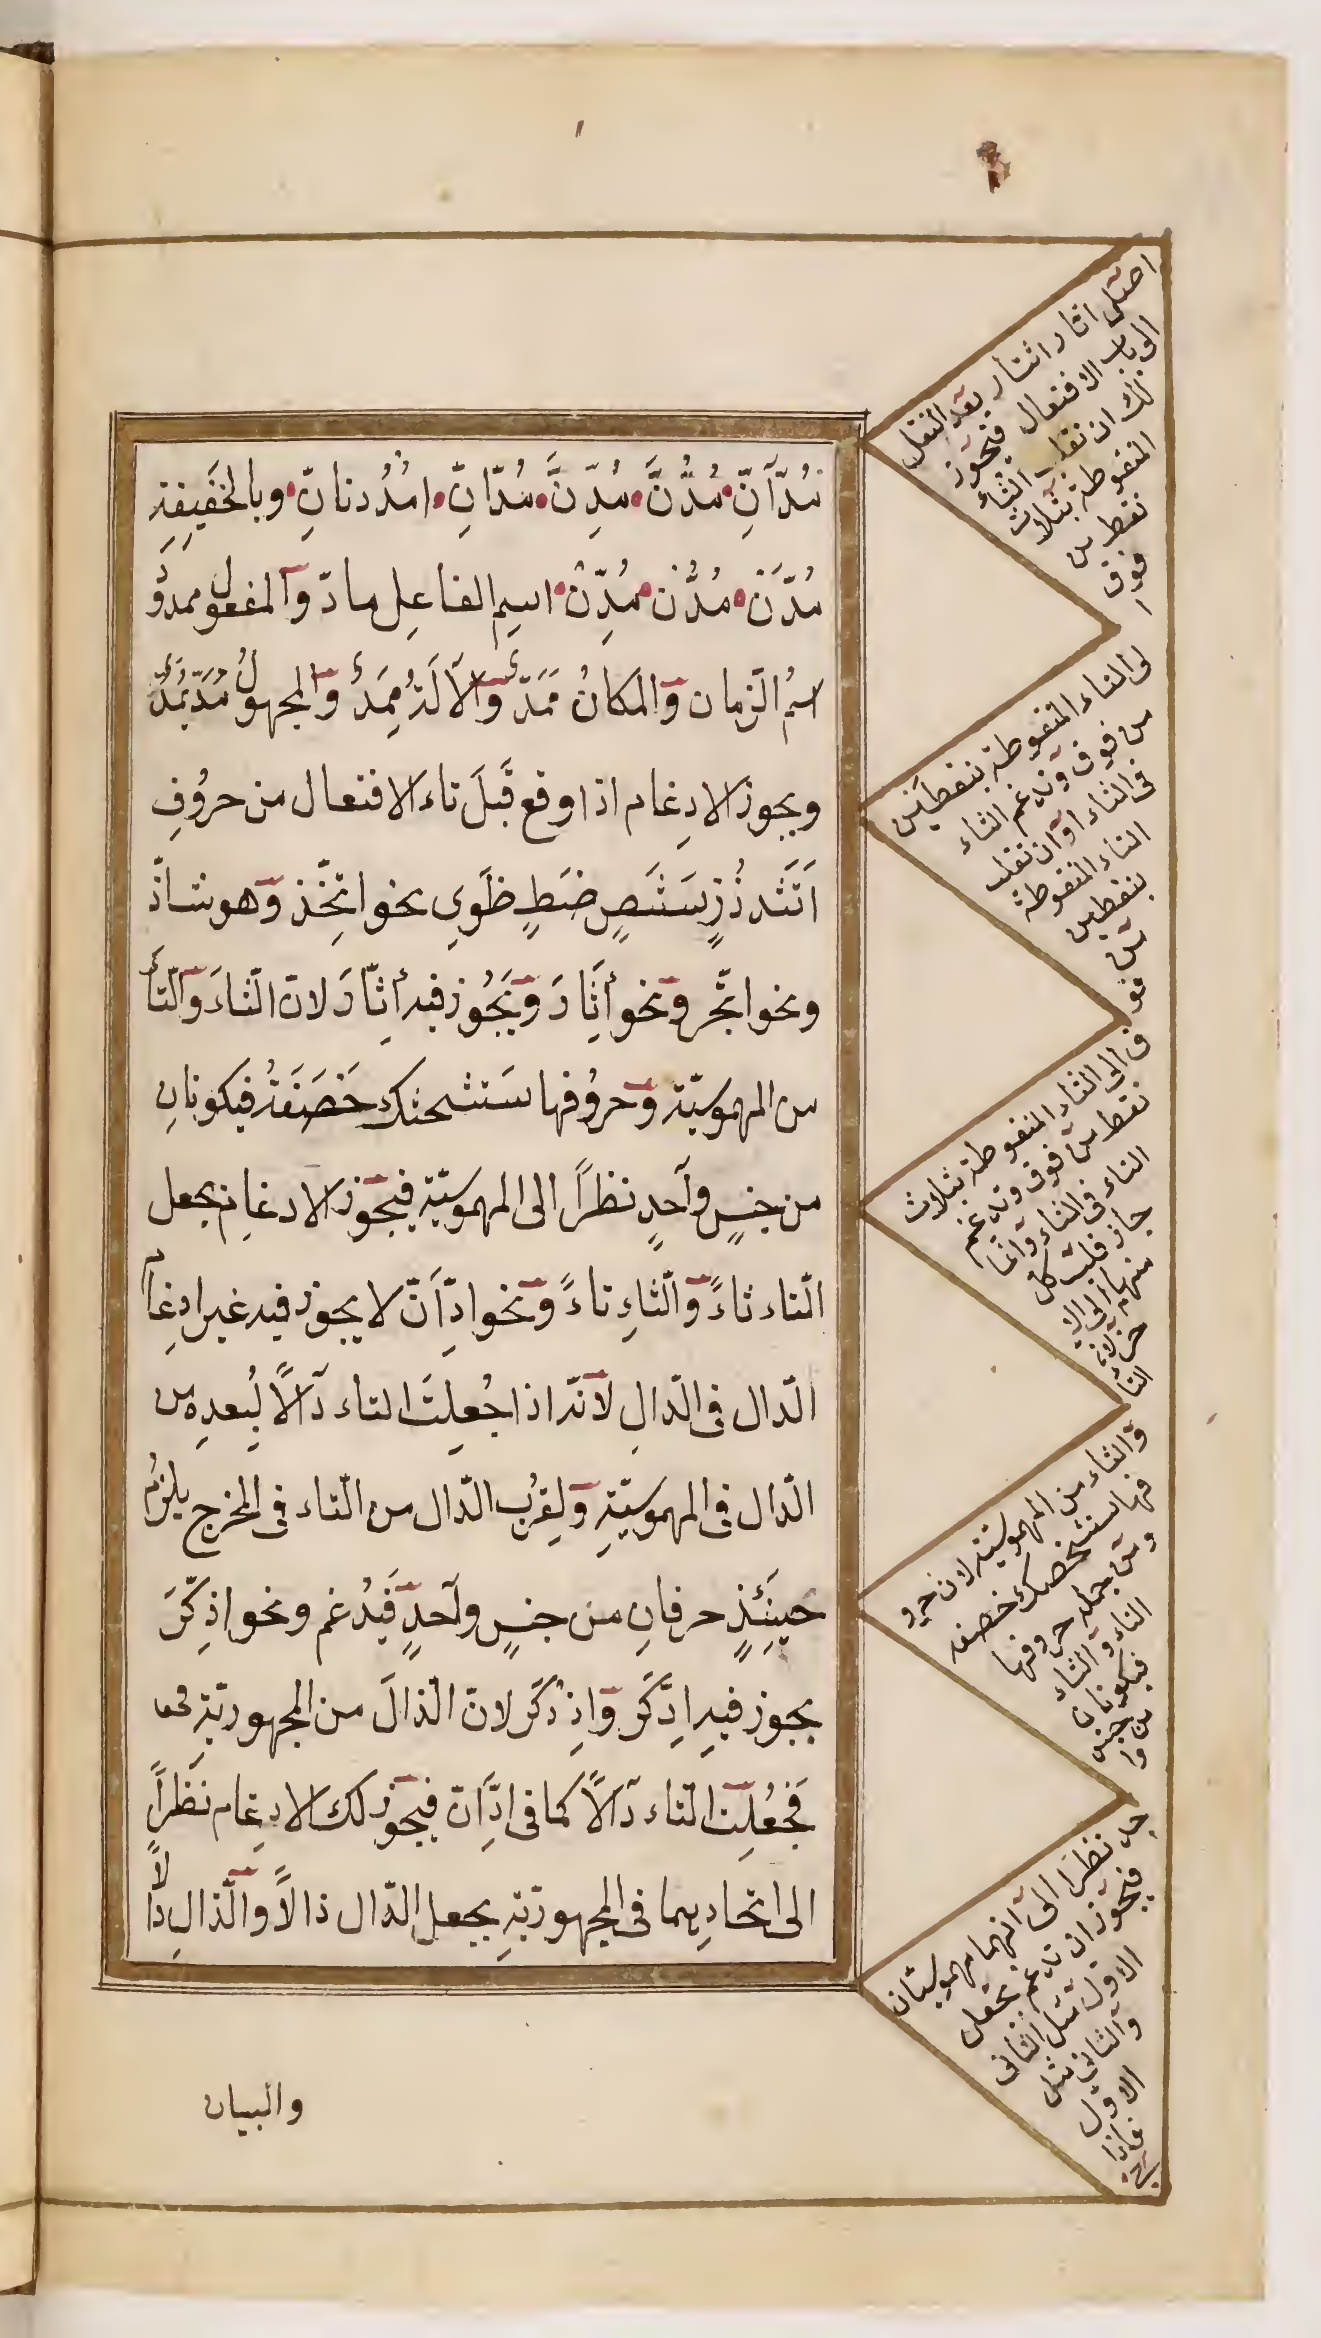 مُدَّآنِّ مُدُّنَّ مُدِّنَّ مُدَّانِّ اُمْدُدنانِّ وبالخَفيفةِ
مُدَّنْ مُدُّنْ مُدِّنْ اسمِ الفاعِلِ مادّ وَالمفعول ممدُودٌ
اسمُ الزمان وَالمكانُ مَمَدٌّ وَالآلَةُ مِمَدٌّ وَالمجهولُ مُدَّ يُمَدُّ
ويجوز الادِغام اذا وقع قَبلَ تاء الافتعال من حروُفِ
اَتَثَدذُزٍ سَشَصٍ ضَطٍ ظَوِي نحو اتَّخَذ وَهو شاذّ
ونحو اتَّجر وَنحو أثَّارَ وَيَجُوز فيه أتَّارَ لانّ الثاءَ وَالتّاءَ
من المهموسيّة وَحروُفها سَتشحثك خَصَفَهُ فيكونانِ
من جنسٍ وآحدٍ نظراً الى المهموسيّة فيجَوز الادغام بجعل
التاء ثاءً وَالثاءِ تاءً وَنحو ادّآنّ لا يجوز فيه غير ادِغام
الدّال فى الدّالِ لآنّه اذا جُعِلتَ التاء دآلاً لِبُعدِه من
الدّال فى المهموسيّةِ وَلِقرُب الدّال من التاء فى المخرج يلزمُ
حينَئِذٍ حرفانِ من جنسٍ وآحدٍ فَيُدغم ونحو اذِّكّرَ
يجوز فيهِ ادِّكَّرَ وَاذِدَكَرَ لانّ الذالَ من المجهوريّةِ
فَجُعِلت التاء دآلاً كما فى ادِّآنَ فيجَوز لك الادغِام نَظراً
الى اتحادِهِما فى المجهوريّةِ بجعل الدّال ذالاً وَالذالِ دالاً
والبيان
اصلَ اثار اثتأر بعد النقل
الى باب الافتعال فيجَوز
لك ان تقلب الثاء
المنقوطة بثلاث
نقط من
فوق
لى التاء المنقوطة بنقطتين
من فوق وَتدغم التاء
فى التاء اوَان تقلب
التاء المنقوطة
بنقطتين
من
فو
ق الى الثاء المنقوطة بثلاث
نقط من فوق وتدغم
الثاء فى الثاء وَانما
جاز قلب كل
منهما الى الا
خر لان
التاء
وَالثاء من المهموسيّة لان حرو
فها ستشحثك خصفه
ومن جملة حروفها
التاء وَالثاء
فيكونان
من جنس
وا
حد نظرا الى انهما مهموستان
فيجَوز ان تدغم بجعل
الاول مثل الثانى
وَالثانى مثل
الاوّل